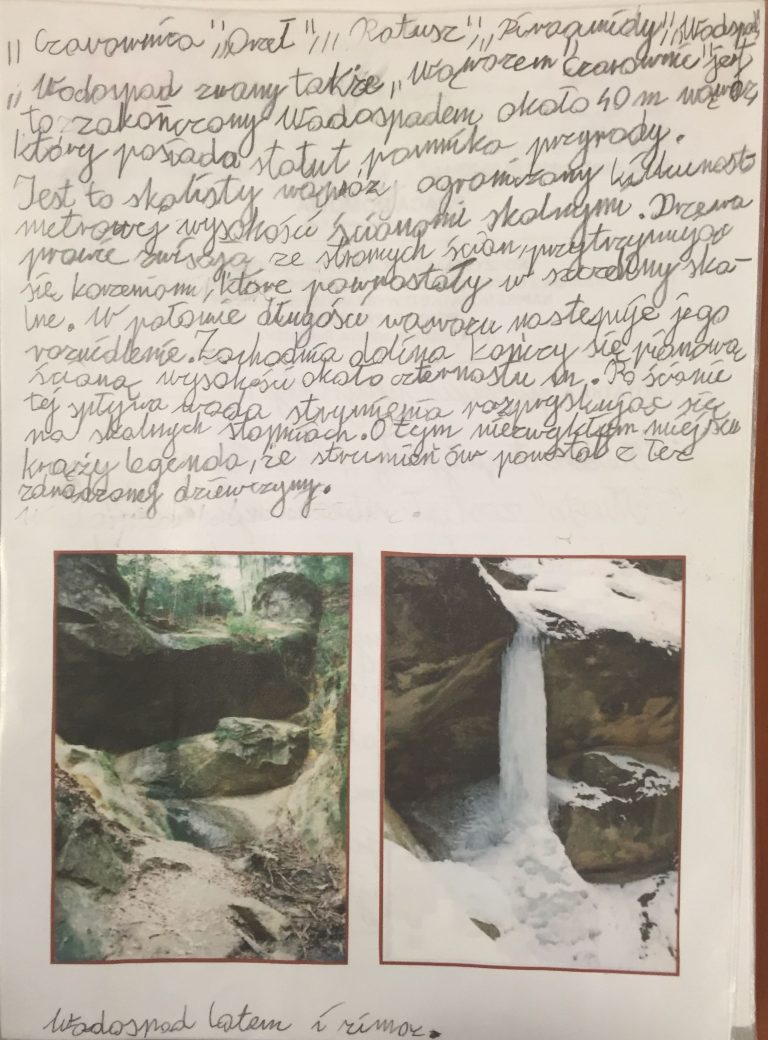 „Czarownica", „Orzeł", „Ratusz", „Piramidy", „Wodospad
„Wodospad zwany także „Wąwozem Czarownic" jest
to zakończony Wodospadem około 40 m wąwóz
który posiada statut pomnika przyrody.
Jest to skalisty wąwóz ogranizony kilkunasto
metrowej wysokości ścianami skalnymi. Drzewa
prawie zwisają ze stromych ścian, przytrzymując
się korzeniami, które powrastały w szczeliny ska-
lne. W połowie długości wąwozu następuje jego
rozwidlenie. Zachodnia dolina kończy się pionową
ścianą wysokości około czternastu m. Po ścianie
tej spływa woda strumienia rozpryskując się
na skalnych stopniach. O tym niezwykłym miejscu
krąży legenda, że strumień ów powstał z łez
zdradzonej dziewczyny.
Wodospad latem i zimą.